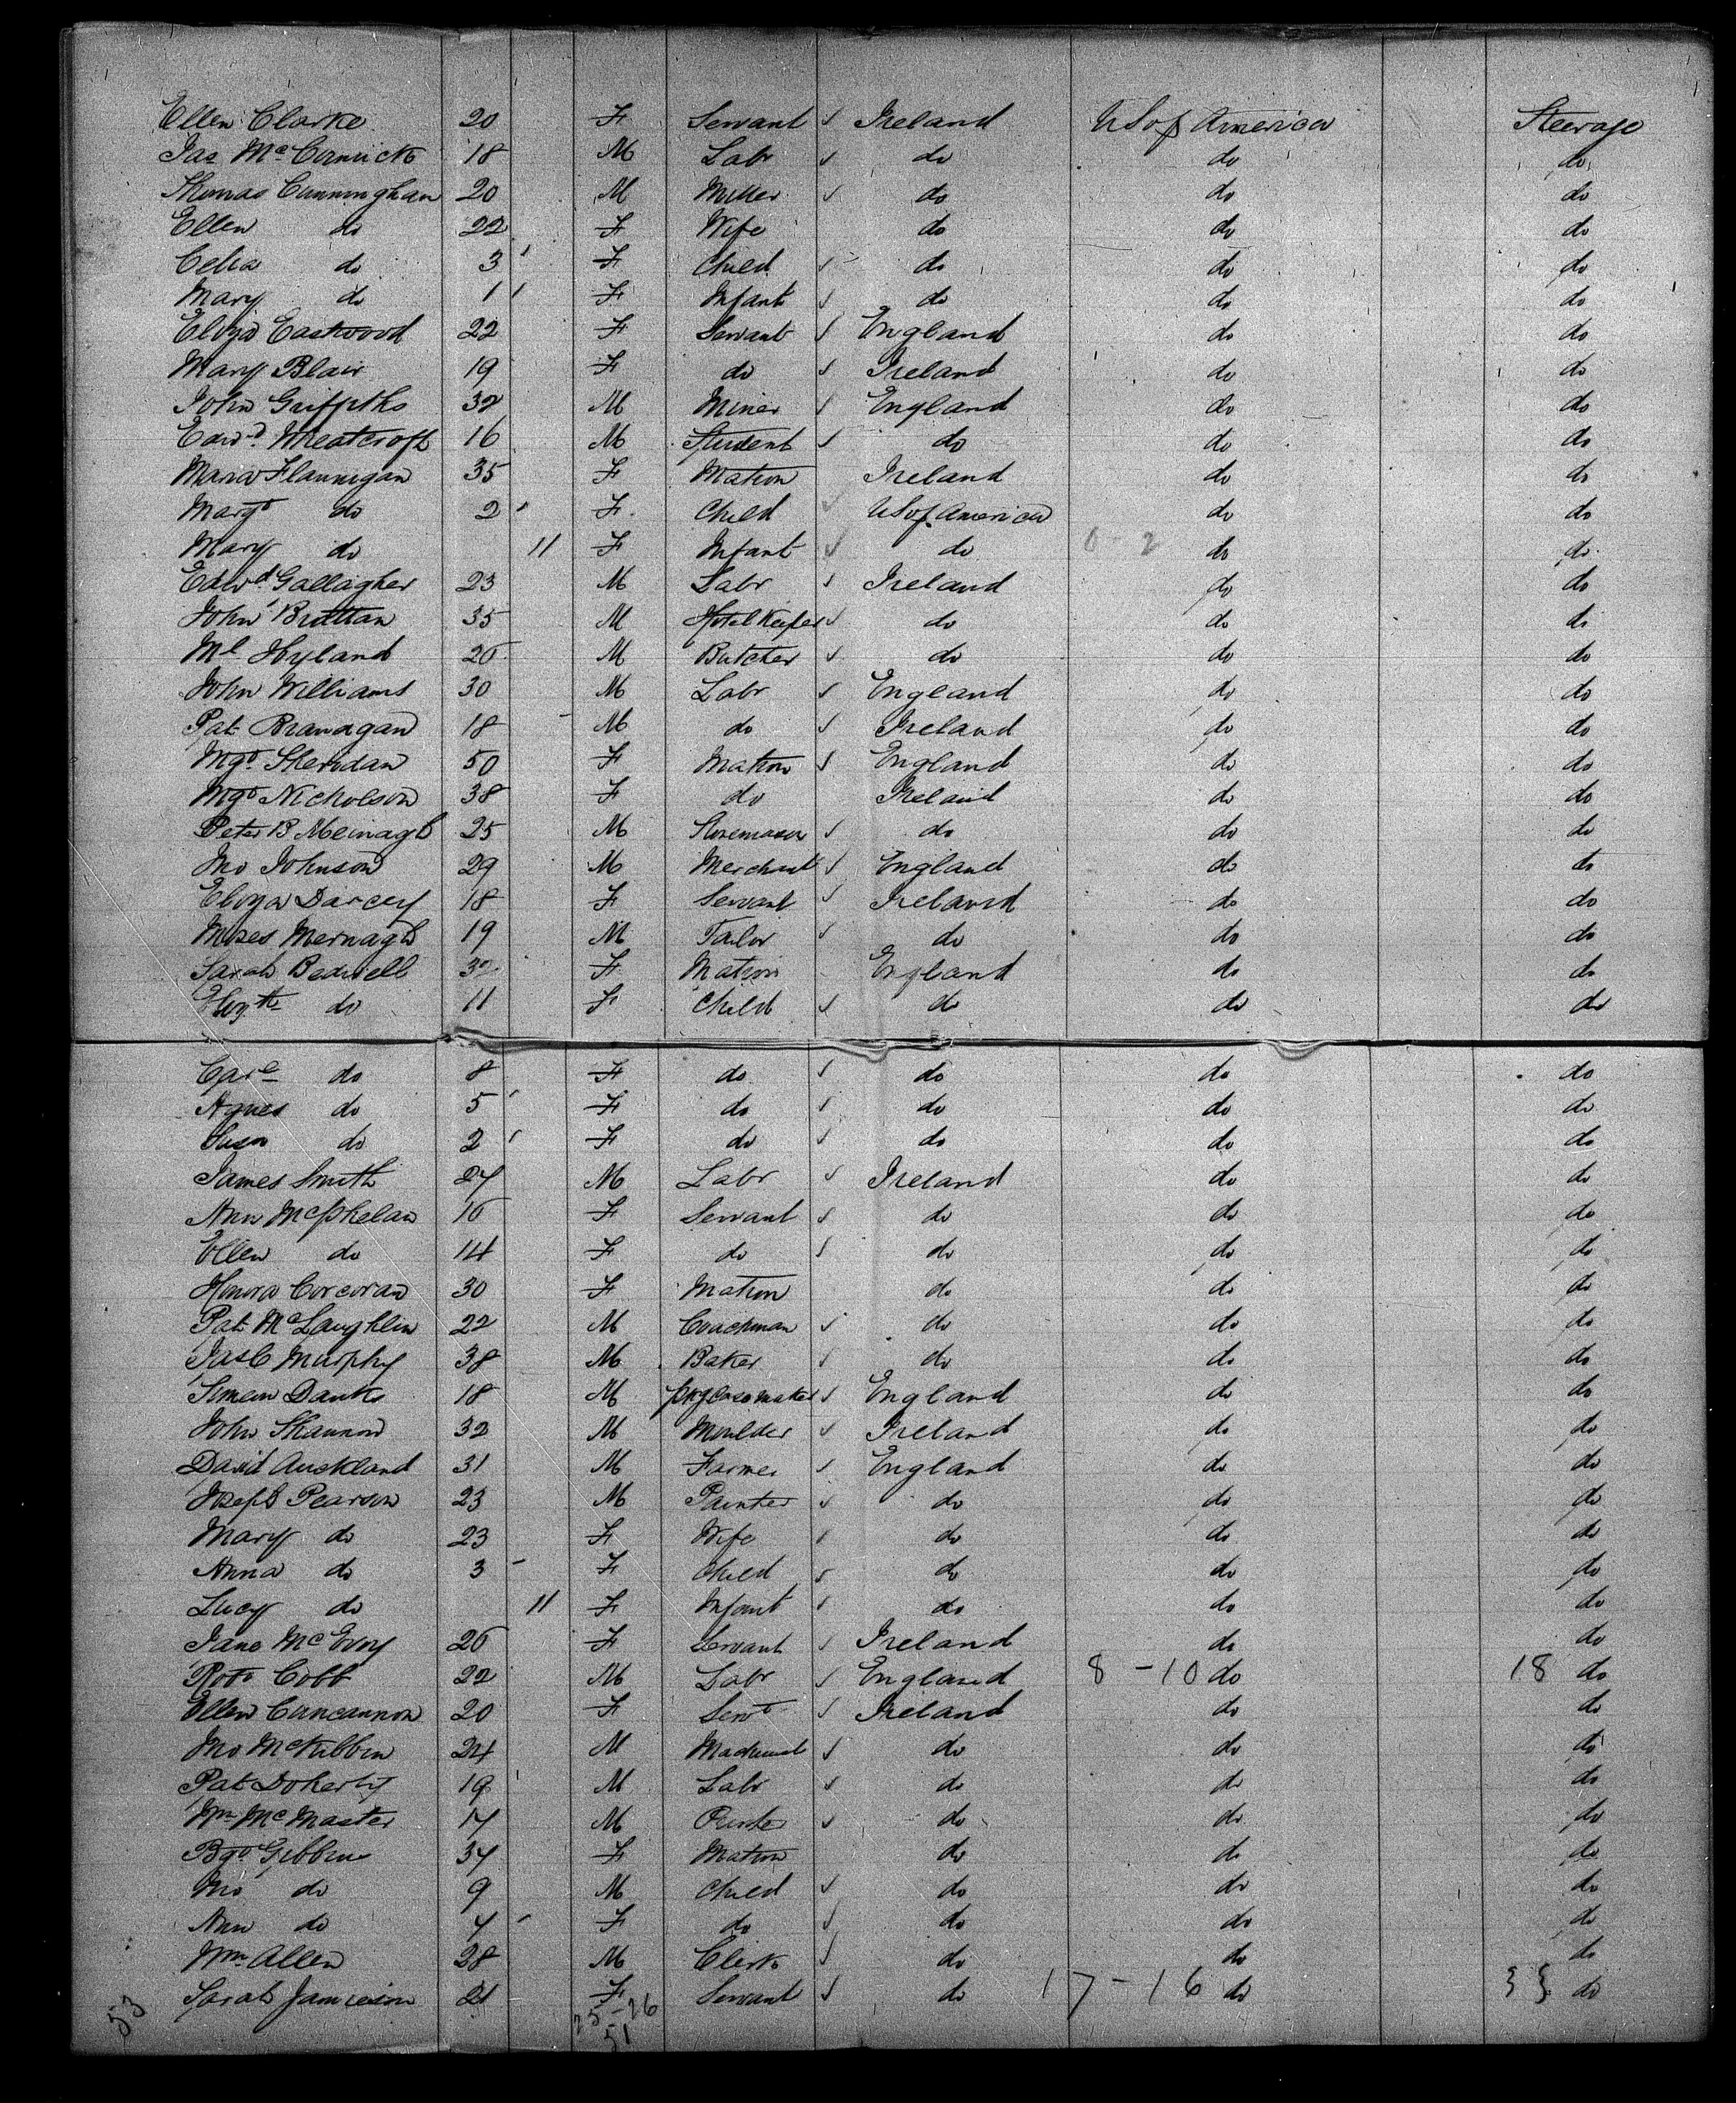 Ellen Clarke 20 F Servant Ireland US of America Steerage
Jas McCormick 18 M Labr do do do
Thomas Cunningham 20 M Miller do do do
Ellen do 22 F Wife do do do
Celia do 3 F Child do do do
Mary do 1 F Infant do do do
Eliza Eastwood 22 F Servant England do do
Mary Blair 19 F do Ireland do do
John Griffiths 32 M Miner England do do
Edwd Meatcroft 16 M Student do do do
Maria Flannigan 35 F Matron Ireland do do
Margt do 2 F Child US of America do do
Mary do 11 F Infant do 0-2 do do
Edwd Gallagher 23 M Labr Ireland do do
John Brittan 35 M Hotel Keeper do do do
Ml Hyland 20 M Butcher do do do
John Williams 30 M Labr England do do
Pat Branagan 18 M do Ireland do do
Mgt Sheridan 50 F Matron England do do
Mgt Nicholson 38 F do Ireland do do
Peter B 25 M Stonemason do do do
Jno Johnson 29 M Merchant England do do
Eliza Darcey 18 F Servant Ireland do do
Moses Mernagh 19 M Tailor do do do
Sarah Bedwell 32 F Matron England do do
Elizth do 11 F Child do do do
do 8 F do do do do
Agnes do 5 F do do do do
Susan do 2 F do do do do
James Smith 27 M Labr Ireland do do
Ann McPhelan 16 F Servant do do do
Ellen do 14 F do do do do
Honora Corcoran 30 F Matron do do do
Pat McLaughlin 22 M Coachman do do do
Jas C Murphy 38 M Baker do do do
Simeon Danks 18 M pkg case maker England do do
John Shannon 32 M Moulder Ireland do do
David Auckland 31 M Farmer England do do
Joseph Pearson 23 M Painter do do do
Mary do 23 F Wife do do do
Anna do 3 F Child do do do
Lucy do 11 F Infant do do do
Jane McEvoy 26 F Servant Ireland do do
Robt Cobb 22 M Labr England 8-10 do 18 do
Ellen Cuncannon 20 F Servt Ireland do do
Jno McKibbin 24 M do do do
Pat Doherty 19 M Labr do do do
Wm McMaster 17 M do do do
Bgt Gibbins 34 F Matron do do do
Jno do 9 M Child do do do
Ann do 4 F do do do do
Wm Allen 28 M Clerk do do do
Sarah Jamieson 21 F Servant do 17-16 do 33 do
53 25-26
51